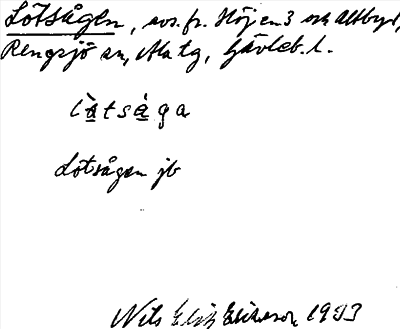 Lötsågen, avs. fr. Höjen 3 och Altbyd,
Rengsjö sn, Ala tg, Gävleb. l.
l ạ̀ t s ạ́ g a
Lotsågen jb
Nils Erik Eriksson 1933